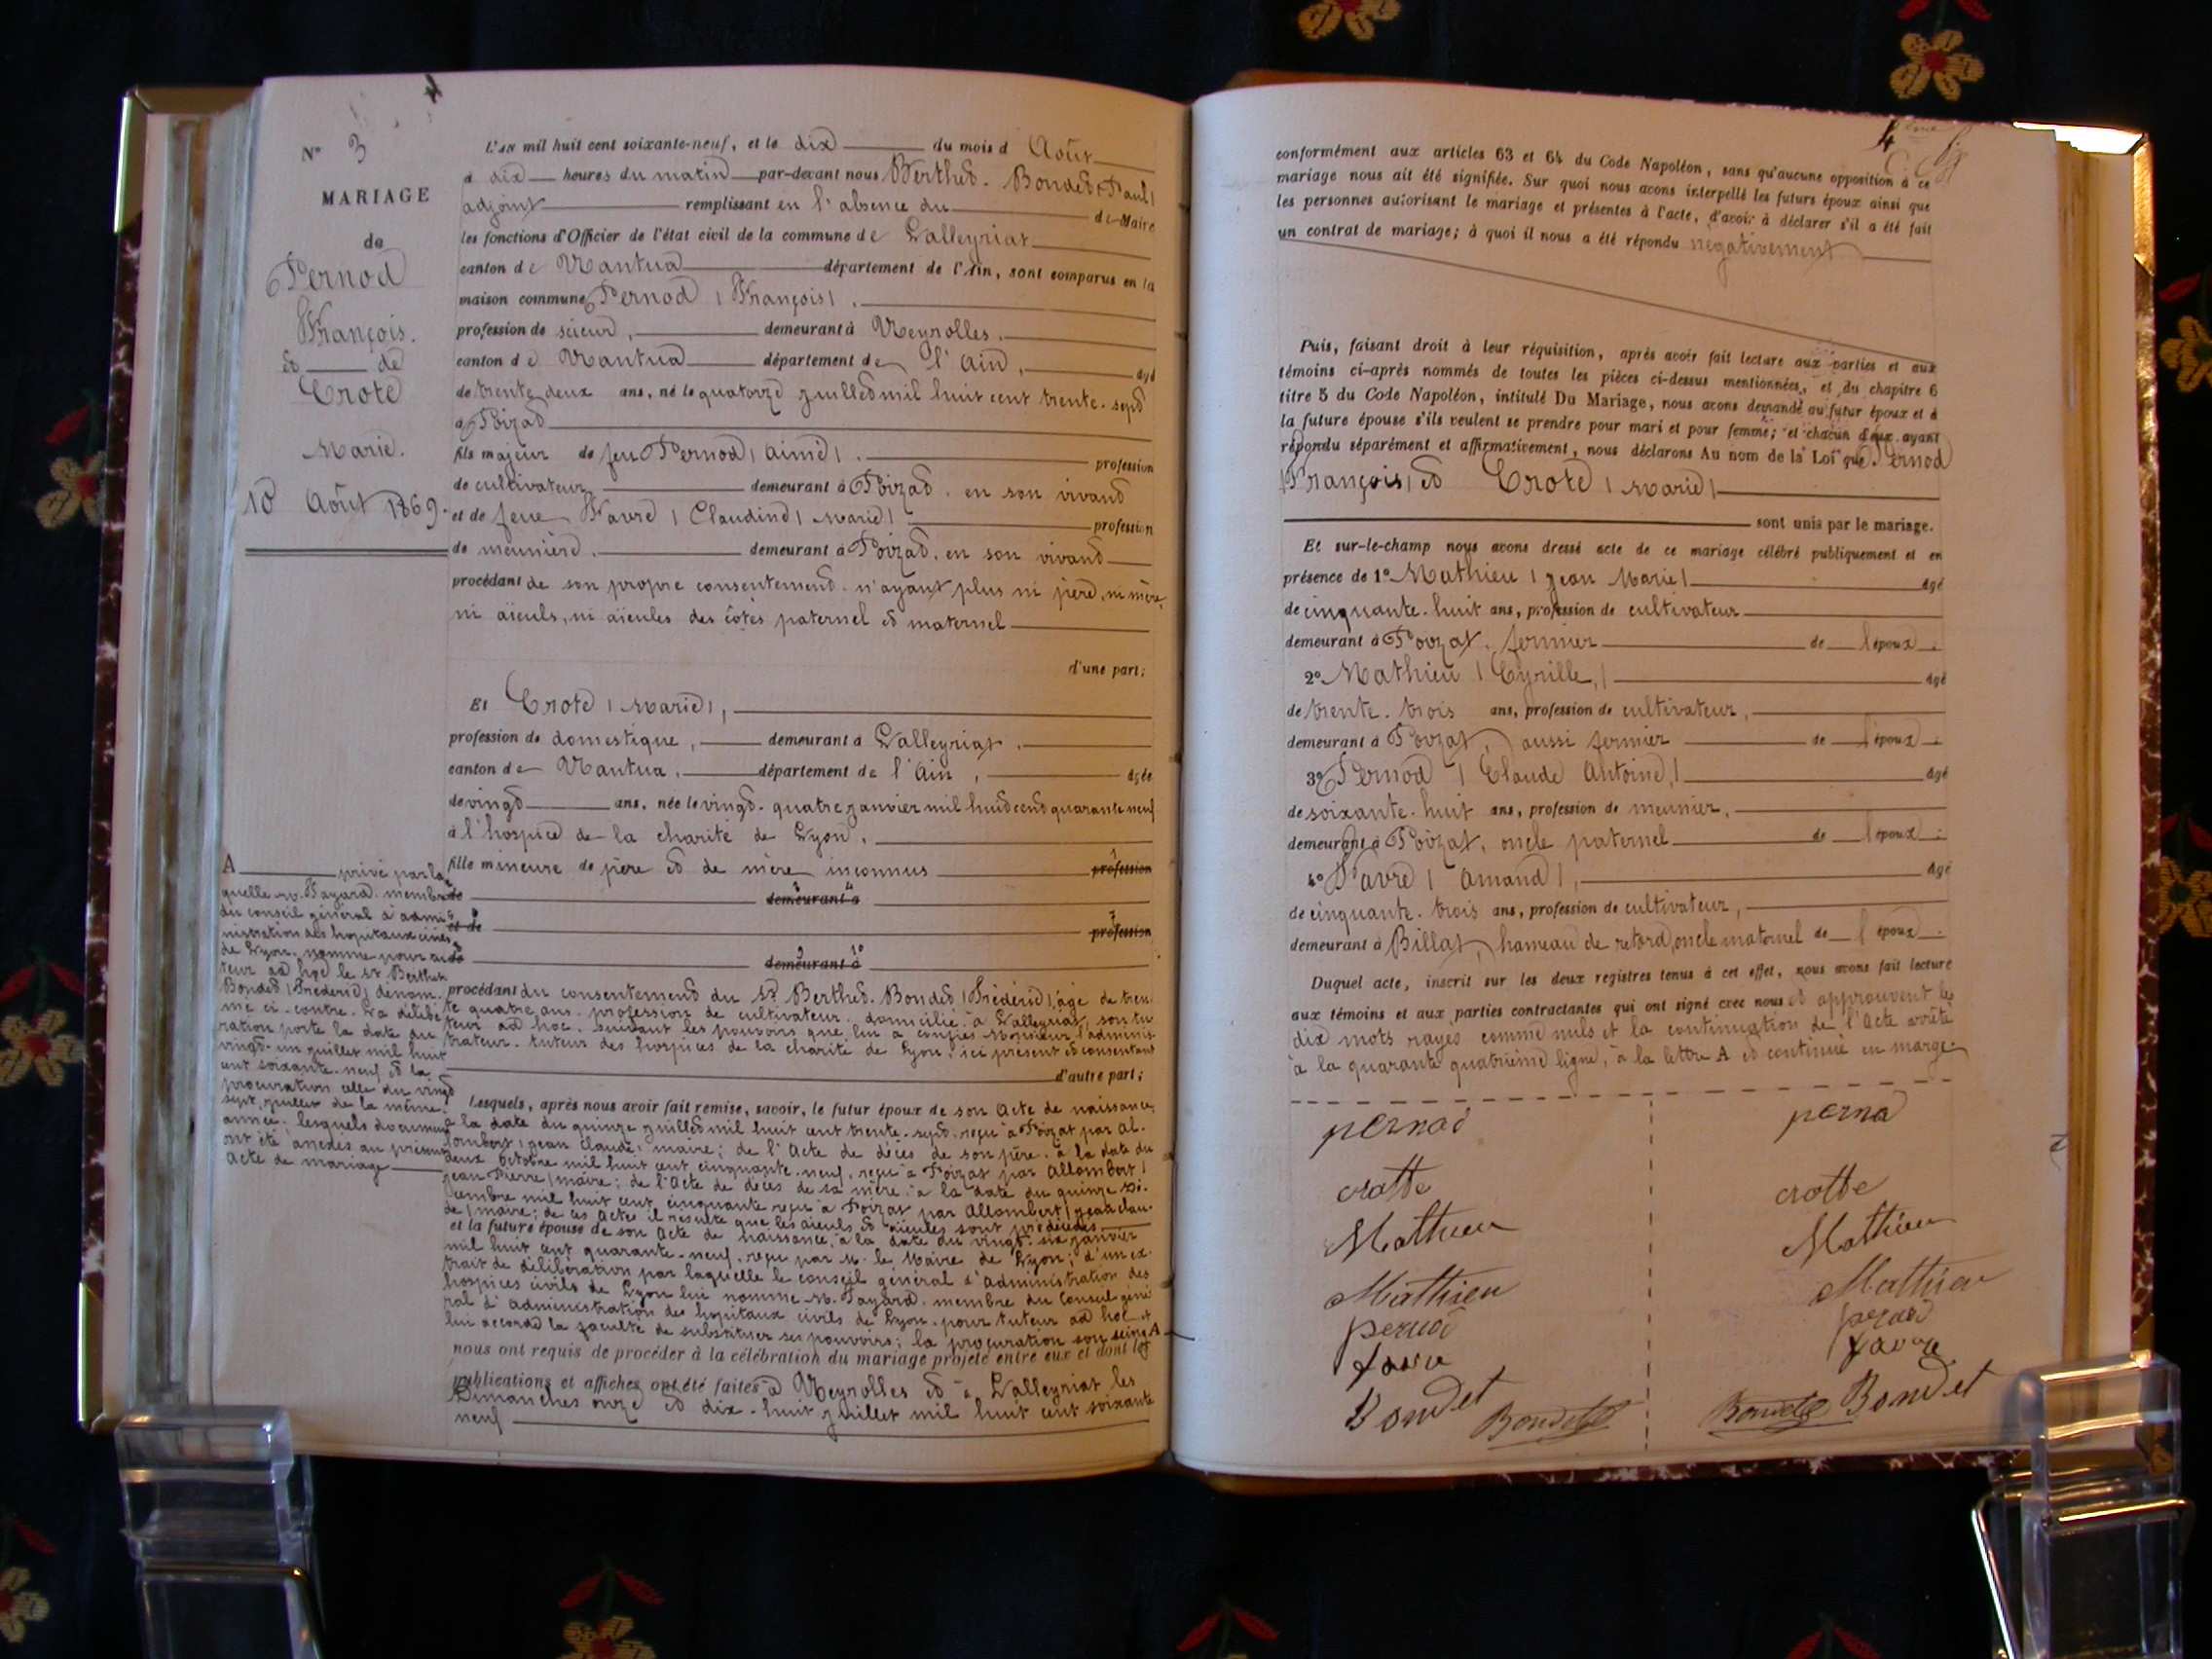 N° 3
MARIAGE
de
Pernod
François.
et de
Crote
Marie.
10 Août 1869.
L'an mil huit cent soixante-neuf, et le dix du mois d Août
à dix heures du matin par-devant nous Berthet-Bondet (Paul)
adjoint remplissant en l'absence du Maire
les fonctions d'Officier de l'état civil de la commune de Lalleyriat
canton de Nantua département de l'Ain, sont comparus en la
maison commune Pernod (François),
profession de scieur, demeurant à Neyrolles.
canton de Nantua département de l'Ain, âgé
de trente deux ans, né le quatorze juillet mil huit cent trente-sept
à Poizat
fils majeur de feu Pernod (Aimé), profession
de cultivateur demeurant à Poizat, en son vivant
et de feue Favre (Claudine Marie) profession
de meunière, demeurant à Poizat, en son vivant
procédant de son propre consentement n'ayant plus ni père, ni mère,
ni aïeuls, ni aïeules des côtés paternel et maternel
d'une part;
Et Crote (Marie),
profession de domestique, demeurant à Lalleyriat,
canton de Nantua, département de l'Ain, âgée
de vingt ans, née le vingt-quatre janvier mil huit cent quarante neuf
à l'hospice de la charité de Lyon,
fille mineure de père et de mère inconnus profession
de demeurant à
et de profession
de demeurant à
procédant du consentement du Sr Berthet-Bondet (Frédéric), âgé de tren
te quatre ans, profession de cultivateur, domicilié à Lalleyriat, son tu
teur ad hoc, suivant les pouvoirs que lui a confiés Monsieur l'adminis
trateur-tuteur des hospices de la charité de Lyon, ici présent et consentant
d'autre part;
Lesquels, après nous avoir fait remise, savoir, le futur époux de son Acte de naissance,
à la date du quinze juillet mil huit cent trente-sept, reçu à Poizat par Al-
lombert (Jean Claude) maire; de l'Acte de décès de son père, à la date du
deux octobre mil huit cent cinquante-neuf, reçu à Poizat par Allombert (
Jean Pierre) maire; de l'Acte de décès de sa mère, à la date du quinze Dé-
cembre mil huit cent cinquante reçu à Poizat par Allombert (Jean Clau-
de) maire; de ces Actes il résulte que les aïeuls et aïeules sont prédécédés
et la future épouse de son Acte de naissance, à la date du vingt-six janvier
mil huit cent quarante-neuf, reçu par M. le Maire de Lyon; d'un ex-
trait de délibération par laquelle le conseil général d'Administration des
hospices civils de Lyon lui nomme M. Payard, membre du Conseil géné
ral d'Administration des hopitaux civils de Lyon, pour tuteur ad hoc et
lui accorde la faculté de substituer ses pouvoirs; la procuration sous seing A
nous ont requis de procéder à la célébration du mariage projeté entre eux et dont les
publications et affiches ont été faites à Neyrolles et à Lalleyriat les
Dimanches onze et dix-huit juillet mil huit cent soixante
neuf
A privé par la
quelle M. Payard, membre
du conseil général d'admi-
nistration des hopitaux civils
de Lyon, nomme pour tu
teur ad hoc le Sr Berthet
Bondet (Frédéric) dénom-
mé ci-contre. La délibé
ration porte la date du
vingt-un juillet mil huit
cent soixante-neuf et la
procuration celle du vingt
sept juillet de la même
année. lesquels documents
ont été annexés au présent
Acte de mariage
conformément aux articles 63 et 64 du Code Napoléon, sans qu'aucune opposition à ce
mariage nous ait été signifiée. Sur quoi nous avons interpellé les futurs époux ainsi que
les personnes autorisant le mariage et présentes à l'acte, d'avoir à déclarer s'il a été fait
un contrat de mariage; à quoi il nous a été répondu négativement
Puis, faisant droit à leur réquisition, après avoir fait lecture aux parties et aux
témoins ci-après nommés de toutes les pièces ci-dessus mentionnées, et du chapitre 6
titre 5 du Code Napoléon, intitulé Du Mariage, nous avons demandé au futur époux et à
la future épouse s'ils veulent se prendre pour mari et pour femme; et chacun d'eux ayant
répondu séparément et affirmativement, nous déclarons Au nom de la Loi que Pernod
(François) et Crote (Marie)
sont unis par le mariage.
Et sur-le-champ nous avons dressé acte de ce mariage célébré publiquement et en
présence de 1° Mathieu (Jean Marie) âgé
de cinquante-huit ans, profession de cultivateur
demeurant à Poizat, fermier de l'époux.
2° Mathieu (Cyrille,) âgé
de trente-trois ans, profession de cultivateur,
demeurant à Poizat, aussi fermier de l'époux.
3° Pernod (Claude Antoine,) âgé
de soixante-huit ans, profession de meunier,
demeurant à Poizat, oncle paternel de l'époux.
4° Favre (Amand), âgé
de cinquante-trois ans, profession de cultivateur,
demeurant à Billat, hameau de retord, oncle maternel de l'époux.
Duquel acte, inscrit sur les deux registres tenus à cet effet, nous avons fait lecture
aux témoins et aux parties contractantes qui ont signé avec nous et approuvent les
dix mots rayés comme nuls et la continuation de l'Acte arrêté
à la quarante quatrième ligne, à la lettre A et continué en marge.
pernod perna
crotte crotte
Mathieu Mathieu
Mathieu Mathieu
pernod pernod
favre favre
Bondet Bondet
Bondet Bondet